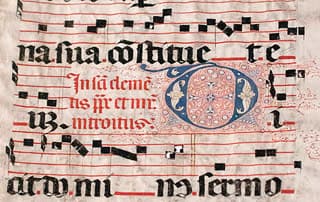 na sua. cōstitue te
In scī clemē
tis pp̄e et mr̄.
introitus.
us. D i
cit do mi nꝰ. sermo